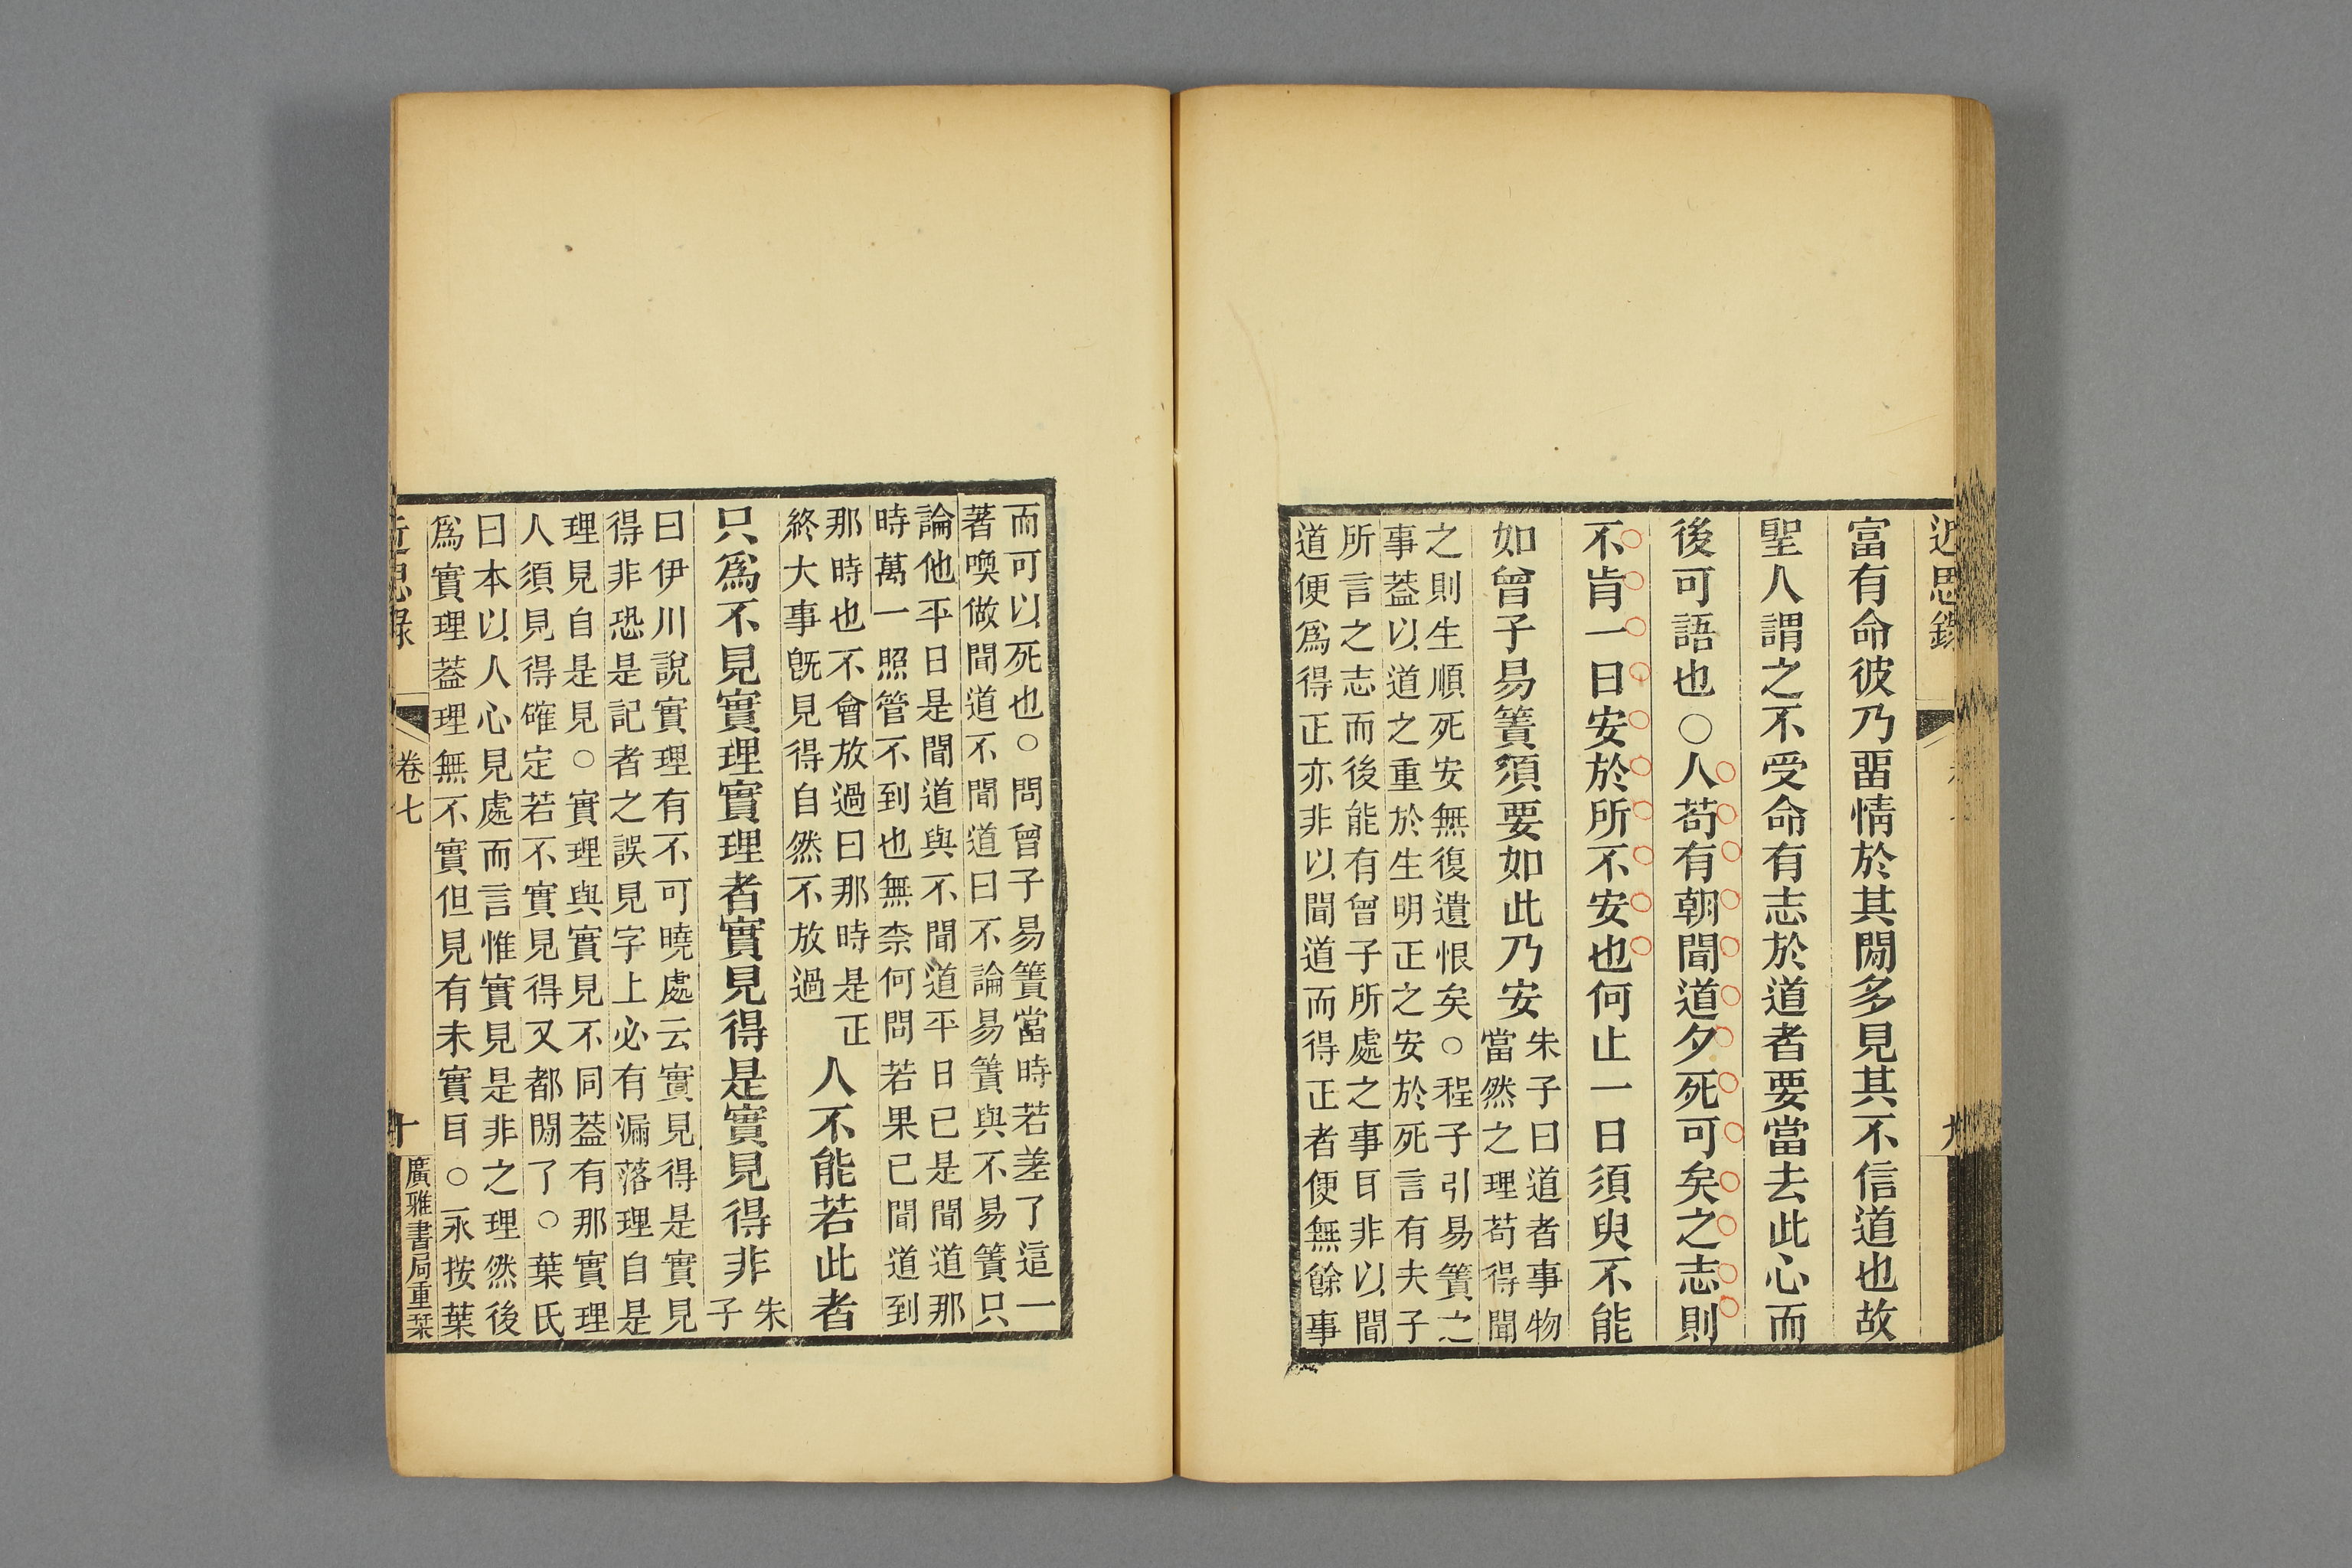 近思錄
富有命彼乃畱情於其閒多見其不信道也故
聖人謂之不受命有志於道者要當去此心而
後可語也○人苟有朝聞道夕死可矣之志則
不肯一日安於所不安也何止一日須臾不能
如曾子易簀須要如此乃安
朱子曰道者事物
當然之理苟得聞
之則生順死安無復遺恨矣○程子引易簀之
事葢以道之重於生明正之安於死言有夫子
所言之志而後能有曾子所處之事耳非以聞
道便爲得正亦非以聞道而得正者便無餘事
而可以死也○問曾子易簀當時若差了這一
著喚做聞道不聞道曰不論易簀與不易簀只
論他平日是聞道與不聞道平日已是聞道那
時萬一照管不到也無柰何問若果已聞道到
那時也不會放過曰那時是正
終大事旣見得自然不放過
人不能若此者
只爲不見實理實理者實見得是實見得非
朱
子
曰伊川說實理有不可曉處云實見得是實見
得非恐是記者之誤見字上必有漏落理自是
理見自是見○實理與實見不同葢有那實理
人須見得確定若不實見得又都閒了○葉氏
曰本以人心見處而言惟實見是非之理然後
爲實理葢理無不實但見有未實耳○永按葉
近思錄
卷七
十
廣雅書局重栞